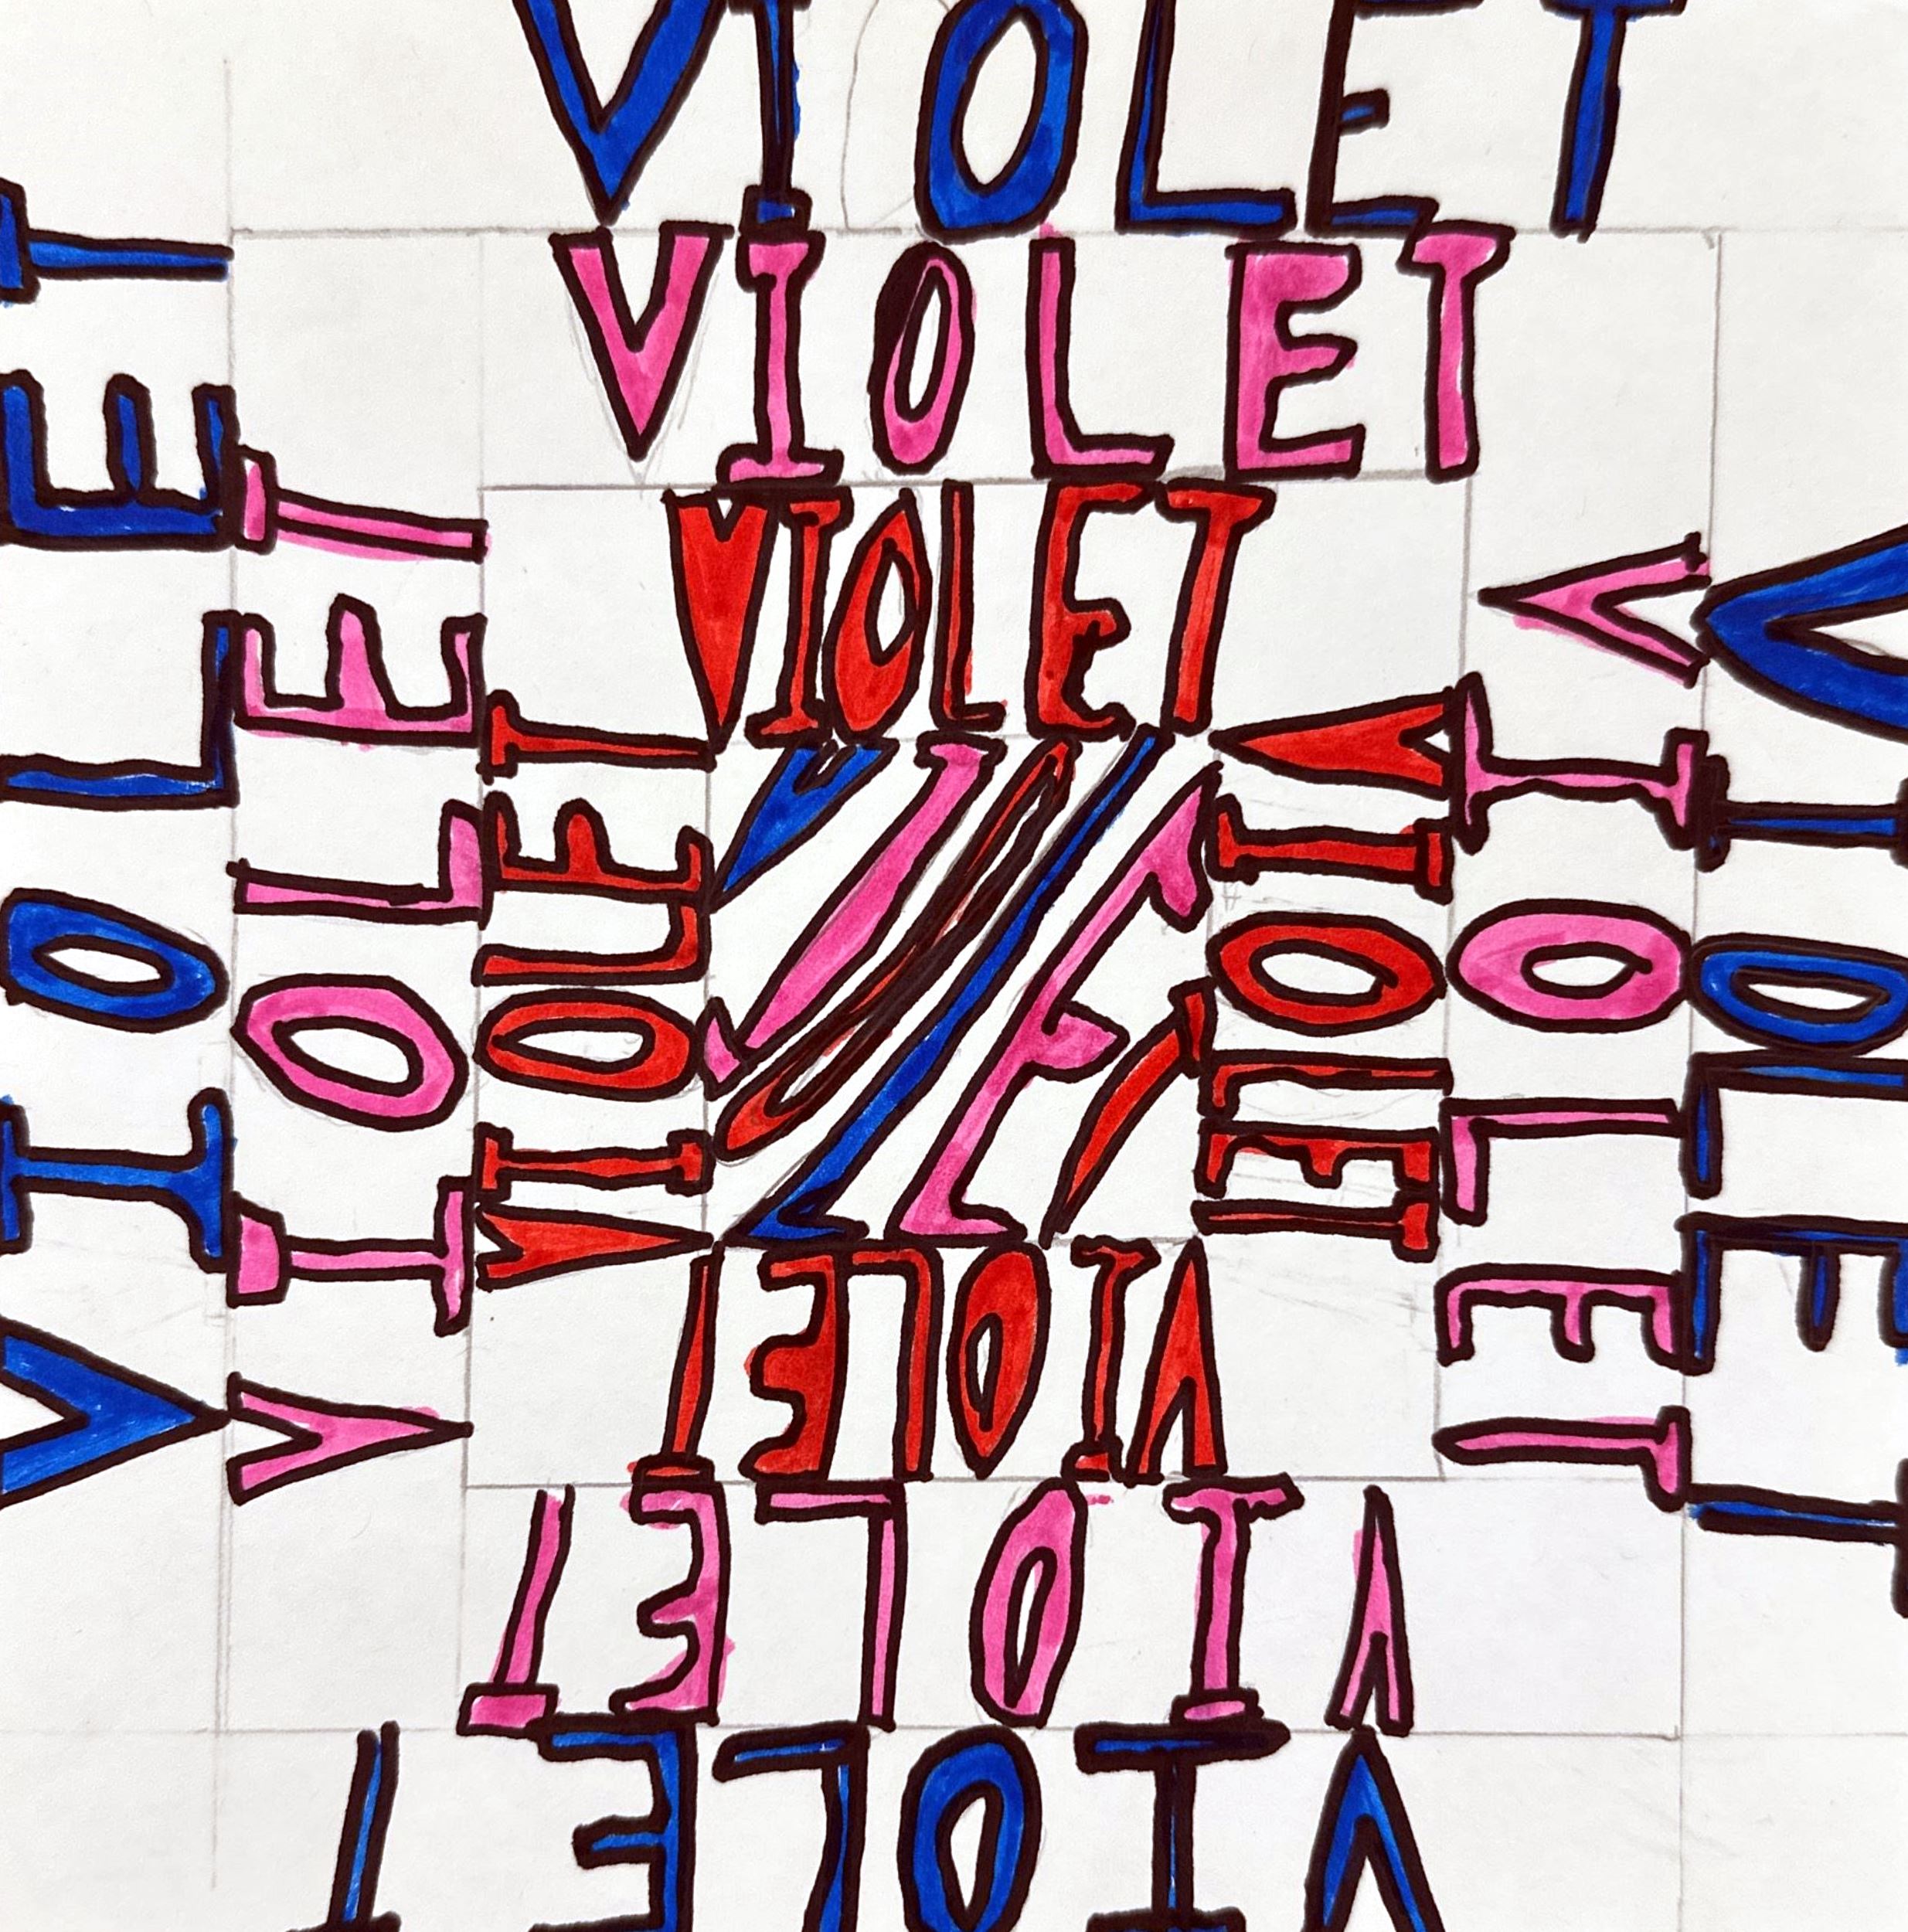 VIOLET
VIOLET
VIOLET
VIOLET
VIOLET
VIOLET
VIOLET
VIOLET
VIOLET
VIOLET
VIOLET
VIOLET
VIOLET